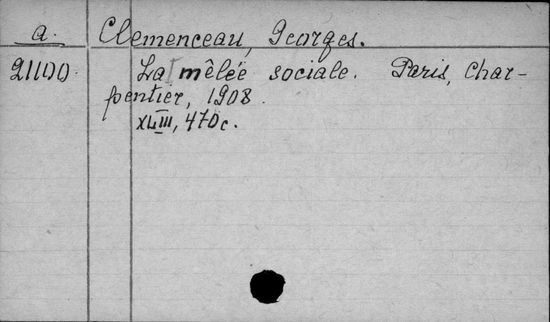 a. Clemenceau, Georges.
21100 La mêlée sociale. Paris, Char-
pentier, 1908.
XLIII, 470 c.